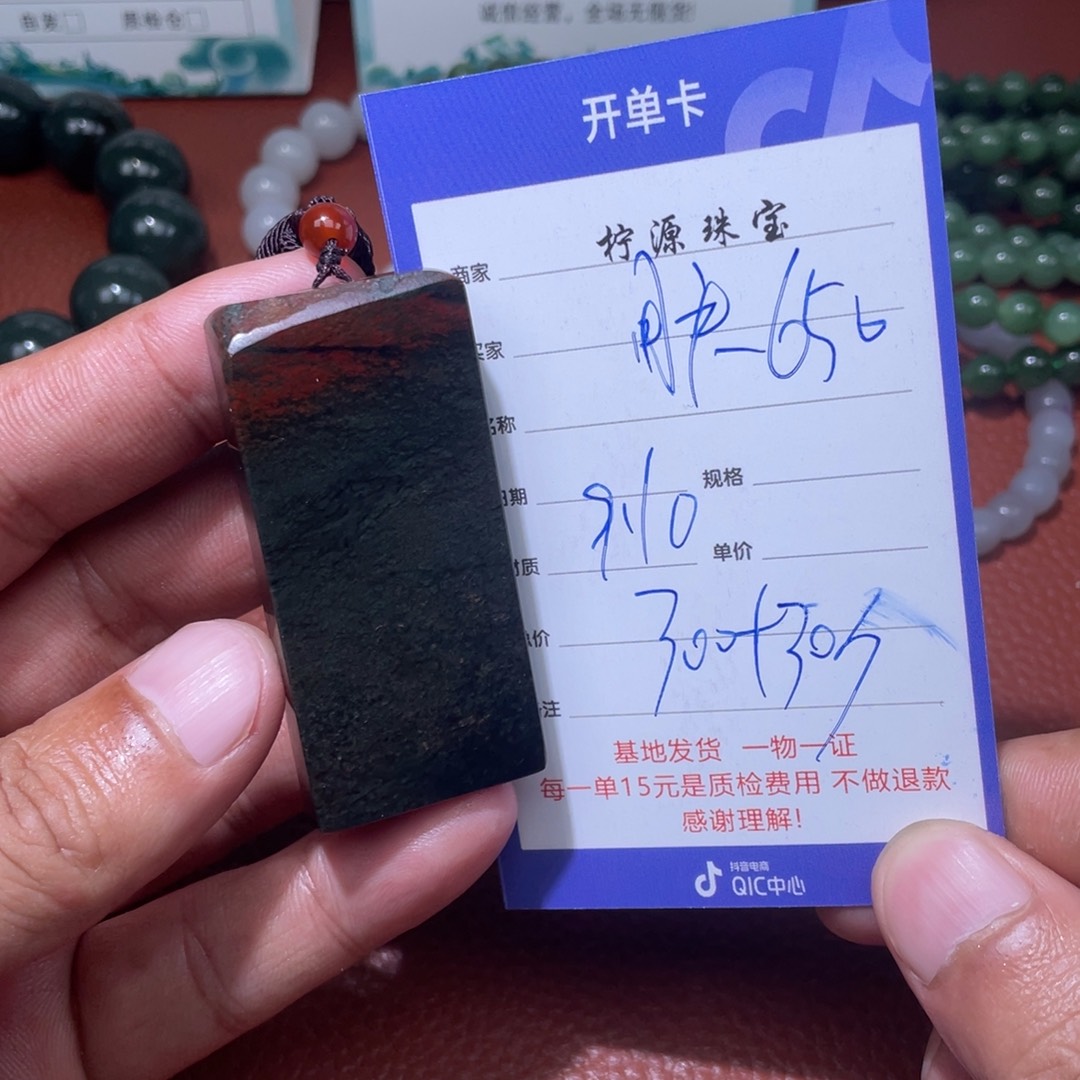 诚信经营，全场无假货!
质检仓
开单卡
柠源珠宝
商家
买家
用户-656
名称
日期
9.10
规格
材质
单价
总价
300+30
注
基地发货 一物一证
每一单15元是质检费用 不做退款
感谢理解!
抖音电商
QIC中心